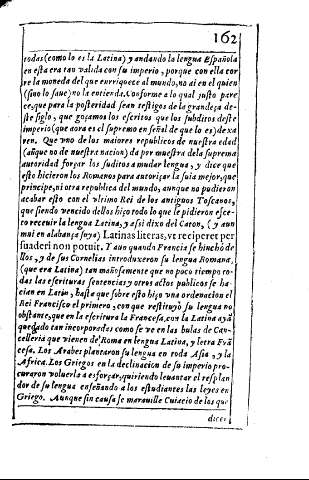 162
rodas (como lo es la Latina) y andando la lengua Española
en esta era tan valida con su imperio, porque con ella cor
re la moneda del que enrriquece al mundo, no ai en el quien
(sino lo saue) no la entienda. Conforme a lo qual justo pare
ce, que para la posteridad sean testigos de la grandeça de-
ste siglo, que goçamos los escritos que los subditos deste
imperio (que aora es el supremo en señal de que lo es) dexa
ren. Que vno de los maiores republicos de nuestra edad
(aũque no de nuestra nacion) da por muestra dela suprema
autoridad forçar los suditos a mudar lengua, y dice que
esto hicieron los Romanos para autoriçar la suia mejor, que
principe, ni otra republica del mundo, aunque no pudieron
acabar esto con el vltimo Rei de los antiguos Toscanos,
que siendo vencido dellos hiço todo lo que le pidieron esce-
to receuir la lengua Latina, y assi dixo del Caton, (y aun
mui en alabança suya) Latinas literas, vt reciperet per
suaderi non potuit. Y aun quando Francia se hinchò de
llos, y de sus Cornelias introduxeron su lengua Romana.
(que era Latina) tan mañosamente que no poco tiempo to-
das las escrituras sentencias y otros actos publicos se ha-
cian en Latin, hasta que sobre esto hiço vna ordenacion el
Rei Francisco el primero, con que restituyò su lengua no
obstante, que en la escritura la Francesa, con la Latina ayã
quedado tan incorporadas como se ve en las bulas de Can-
celleria que vienen de Roma en lengua Latina, y letra Frã
cesa. Los Arabes plantaron su lengua en toda Asia, y la
Africa. Los Griegos en la declinacion de su imperio pro-
curaron voluerla a esforçar, quiriendo leuantar el resplan
dor de su lengua enseñando a los estudiantes las leyes en
Griego. Aunque sin causa se marauille Cuiacio de los que
dicen